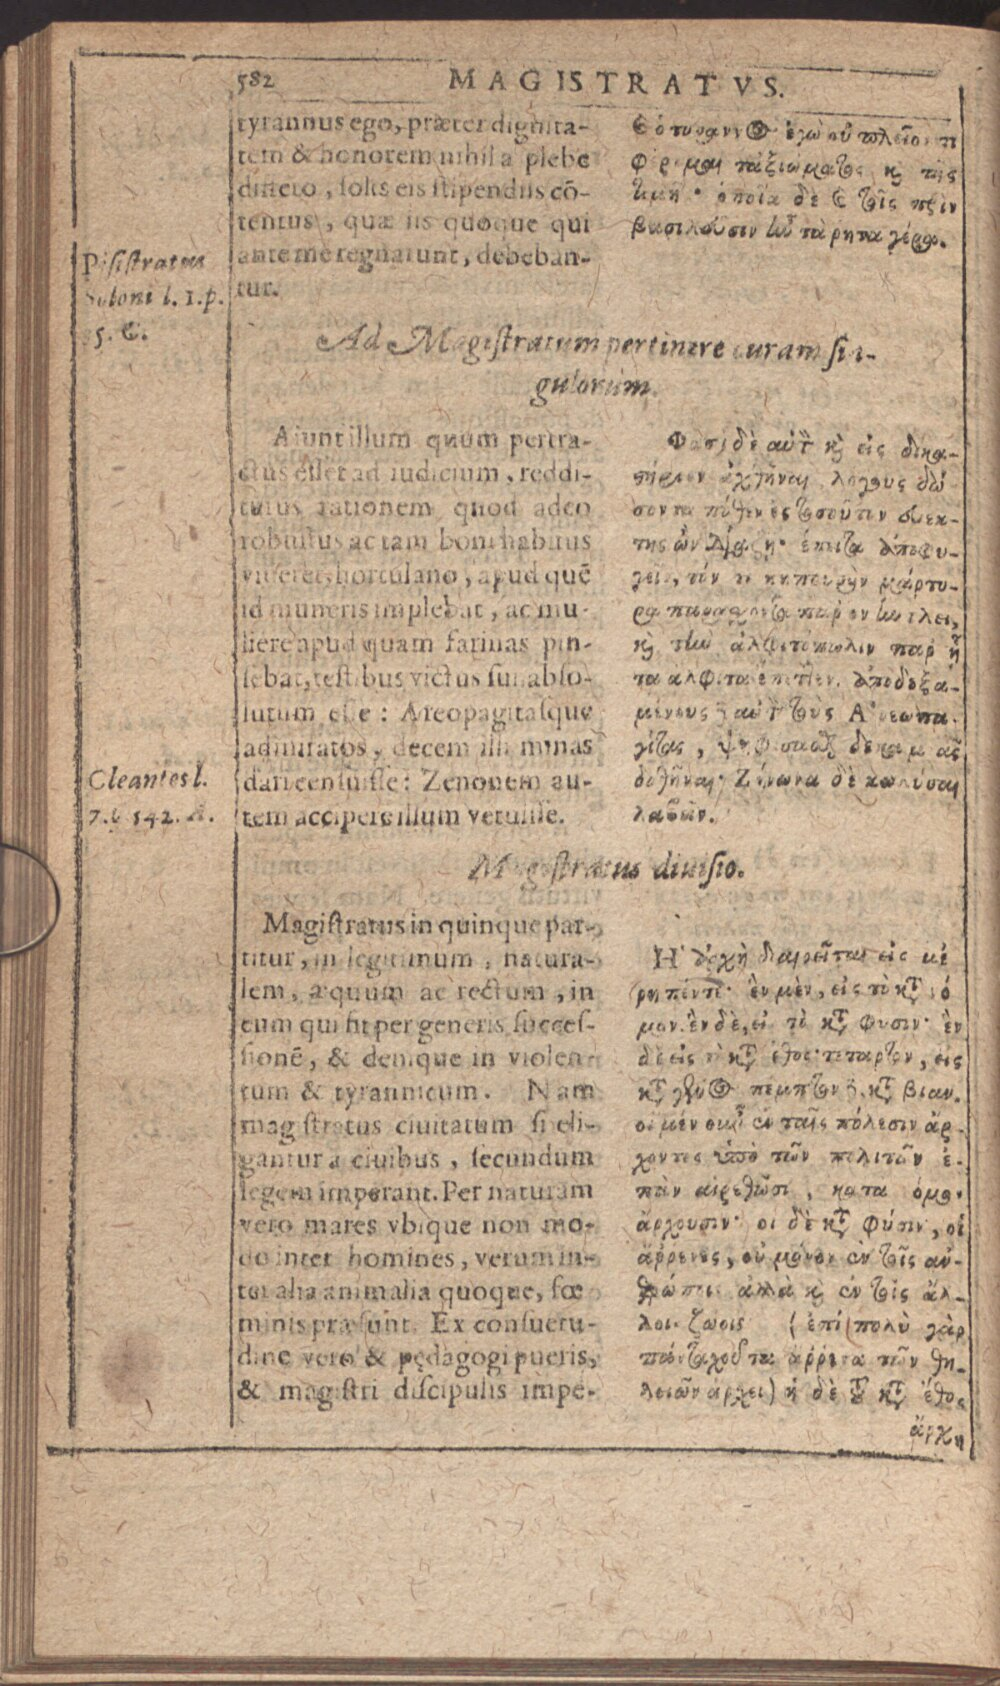 582 MAGISTRATVS.
tyrannus ego, præter dignita-
tem & honorem nihil a plebe
differo, solis eis stipendiis cō-
tentus, quæ iis quoque qui
ante me regnarunt, debeban-
tur.
Pisistratus
Soloni l. 1. p.
35. C.
ὁ τύραννος ἐγὼ οὐ πλεῖον τι
φέρομαι τἀξιώματος καὶ τῆς
τιμῆς· ὁποῖα δὲ καὶ τοῖς πρὶν
βασιλεύουσιν ἦν τὰ ῥητὰ γέρα.
Ad Magistratum pertinere curam sin-
gulorum.
Aiunt illum quum pertra-
ctus esset ad iudicium, reddi-
turus rationem quod adeo
robustus ac tam boni habitus
viueret, hortulano, apud quē
id muneris implebat, ac mu-
liere apud quam farinas pin-
sebat, testibus victus sui abso-
lutum esse: Areopagitasque
admiratos, decem illi minas
dari censuisse: Zenonem au-
tem accipere illum vetuisse.
Cleantes l.
7. 542. A.
Φασὶ δὲ αὐτὸν καὶ εἰς δικα-
στήριον ἀχθῆναι λόγους δώ
σοντα πόθεν ἐς τοσοῦτον εὐεκ-
της ὢν διαζῇ· ἔπειτα ἀποφυ-
γεῖν, τόν τε κηπουρὸν μάρτυ-
ρα παρασχόντα παρ' ὃν ἤντλει,
καὶ τὴν ἀλφιτόπωλιν παρ' ᾗ
τὰ ἄλφιτα ἔπεττεν. ἀποδεξα-
μένους δὲ αὐτὸν τοὺς Ἀρεωπα-
γίτας, ψηφίσασθαι δέκα μνᾶς
δοθῆναι· Ζήνωνα δὲ κωλῦσαι
λαβεῖν.
Magistratus diuisio.
Magistratus in quinque par-
titur, in legitimum, natura-
lem, æquum ac rectum, in
eum qui fit per generis succes-
sionē, & denique in violen-
tum & tyrannicum. Nam
magistratus ciuitatum si eli-
gantur a ciuibus, secundum
legem imperant. Per naturam
vero mares vbique non mo-
do inter homines, verum in-
ter alia animalia quoque, fœ
minis præsunt. Ex consuetu-
dine vero & pędagogi pueris,
& magistri discipulis impe-
Ἡ ἀρχὴ διαιρεῖται εἰς μέ
ρη πέντε· ἓν μὲν, εἰς τὸ κατὰ νό
μον· ἓν δὲ, εἰς τὸ κατὰ φύσιν· ἓν
δὲ εἰς τὸ κατὰ ἔθος· τέταρτον, εἰς
κατὰ γένος πέμπτον δὲ, κατὰ βίαν.
οἱ μὲν οὖν ἐν ταῖς πόλεσιν ἄρ-
χοντες ὑπὸ τῶν πολιτῶν ἐ-
πὰν αἱρεθῶσι, κατὰ νόμον
ἄρχουσιν· οἱ δὲ κατὰ φύσιν, οἱ
ἄρρενες, οὐ μόνον ἐν τοῖς ἀν-
θρώποις ἀλλὰ καὶ ἐν τοῖς ἄλ-
λοις ζώοις (ἐπὶ πολὺ γὰρ
πανταχοῦ τὰ ἄρρενα τῶν θη-
λειῶν ἄρχει) ἡ δὲ τοῦ κατὰ ἔθος
ἀρχὴ